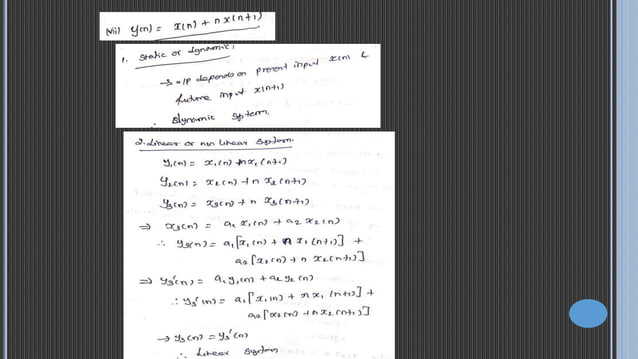 (vii) y(n) = x(n) + n x(n+1)
1. Static or dynamic:
→ o/p depends on present input x(n) &
future input x(n+1)
∴ Dynamic system.
2. Linear or non linear system.
y₁(n) = x₁(n) + n x₁(n+1)
y₂(n) = x₂(n) + n x₂(n+1)
y₃(n) = x₃(n) + n x₃(n+1)
⇒ x₃(n) = a₁ x₁(n) + a₂ x₂(n)
∴ y₃(n) = a₁[x₁(n) + n x₁(n+1)] +
a₂[x₂(n) + n x₂(n+1)]
⇒ y₃'(n) = a₁ y₁(n) + a₂ y₂(n)
∴ y₃'(n) = a₁[x₁(n) + n x₁(n+1)] +
a₂[x₂(n) + n x₂(n+1)]
→ y₃(n) = y₃'(n)
∴ Linear System